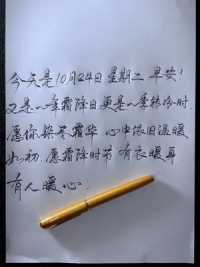 今天是10月24日 星期二 早安!
又是一季霜降日 更是一季转冷时
愿你染霜华 心中依旧温暖
如初.愿霜降时节 有衣暖身
有人暖心.